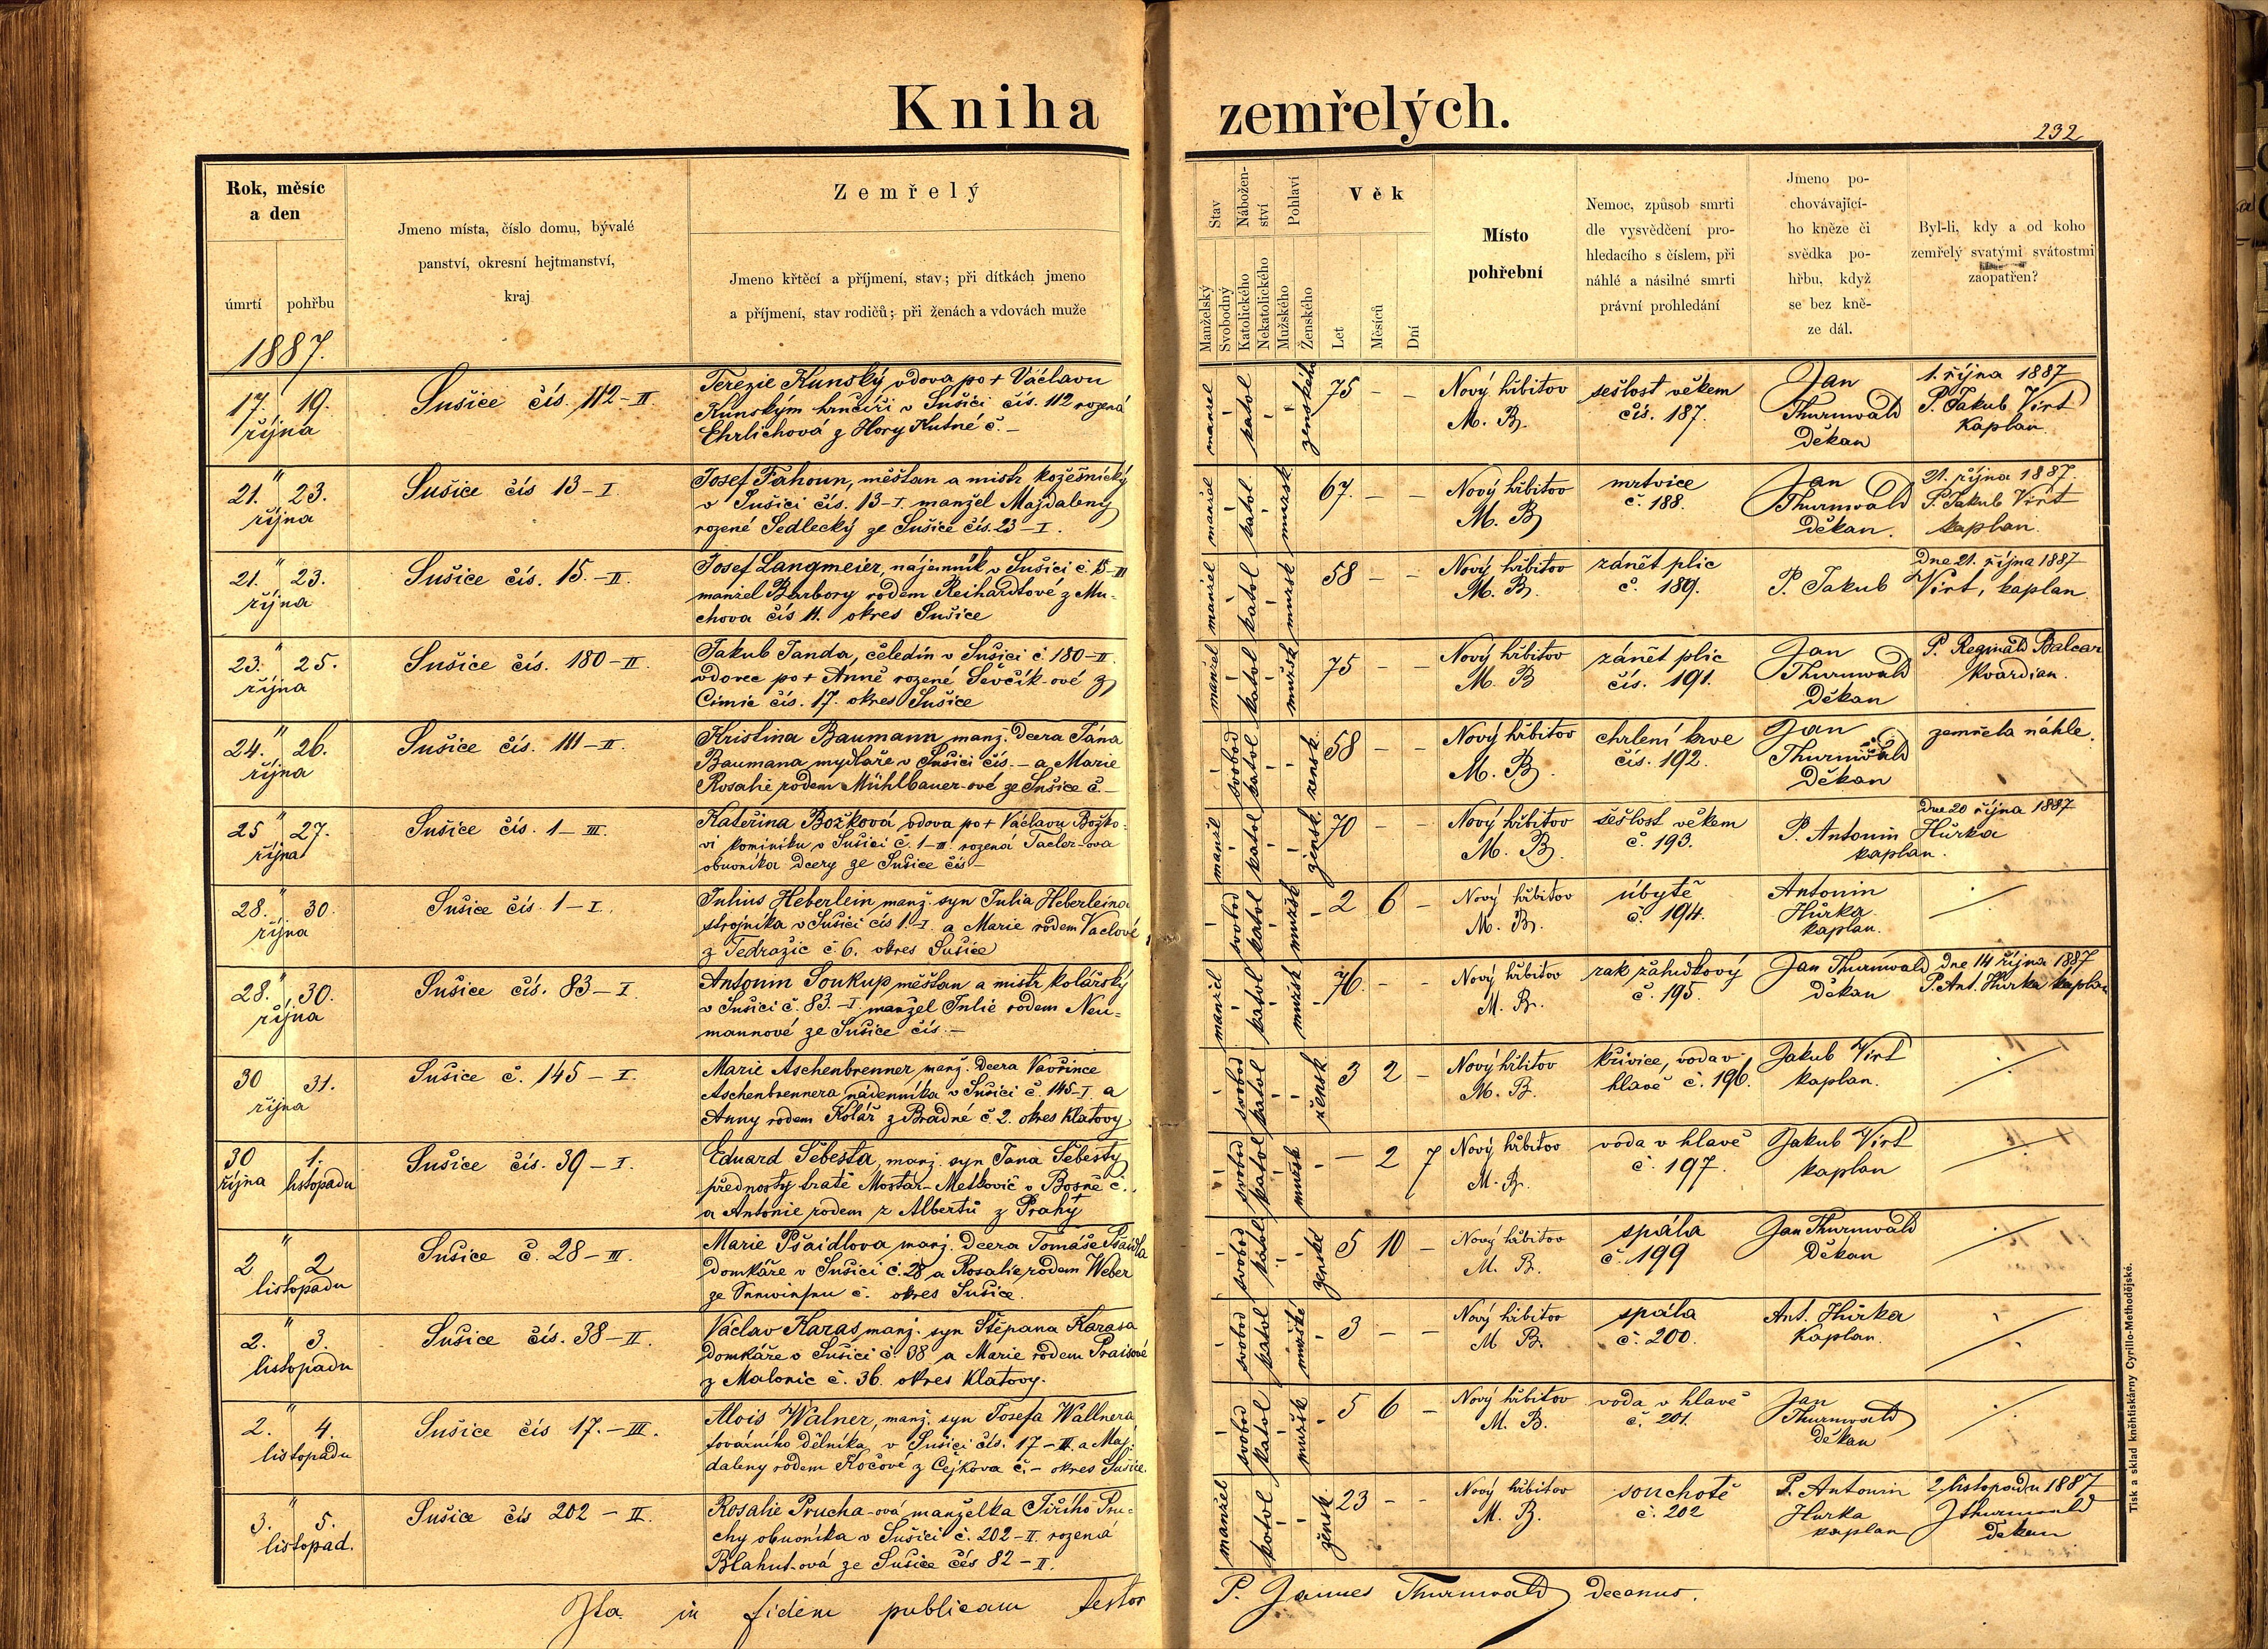 Kniha zemřelých.
232
Rok, měsíc
a den
úmrtí pohřbu
1887.
Jmeno místa, číslo domu, bývalé
panství, okresní hejtmanství,
kraj
Zemřelý
Jmeno křtěcí a příjmení, stav; při dítkách jmeno
a příjmení, stav rodičů; při ženách a vdovách muže
Stav
Manželský
Svobodný
Nábožen-
ství
Katolického
Nekatolického
Pohlaví
Mužského
Ženského
Věk
Let
Měsíců
Dní
Místo
pohřební
Nemoc, způsob smrti
dle vysvědčení pro-
hledacího s číslem, při
náhlé a násilné smrti
právní prohledání
Jmeno po-
chovávající-
ho kněze či
svědka po-
hřbu, když
se bez kně-
ze dál.
Byl-li, kdy a od koho
zemřelý svatými svátostmi
zaopatřen?
17. 19.
října
Sušice čís. 112-II
Terezie Kunský vdova po + Václavu
Kunským hrnčíři v Sušici čís. 112 rozená
Ehrlichová z Hory Kutné č. –
manžel katol ženského 75 – –
Nový hřbitov
M. B.
sešlost věkem
čís. 187.
Jan
Thurnwald
Děkan
1. října 1887
P. Jakub Virt
Kaplan
" 21. 23.
října
Sušice čís 13-I.
Josef Fahoun, měšťan a mistr kožešnický
v Sušici čís. 13-I. manžel Majdaleny
rozené Sedlecký ze Sušice čís. 23-I.
manžel katol. mužsk 67. – –
Nový hřbitov
M. B.
mrtvice
č. 188.
Jan
Thurnwald
Děkan.
21. října 1887.
P. Jakub Virt
kaplan.
" 21. 23.
října
Sušice čís. 15.-II.
Josef Langmeier, nájemník v Sušici č. 15-II
manžel Barbory rodem Reihardtové z Mu-
chova čís 11. okres Sušice
manžel katol mužsk 58 – –
Nový hřbitov
M. B.
zánět plic
č. 189.
P. Jakub
Dne 21. října 1887
Virt, kaplan.
" 23. 25.
října
Sušice čís. 180-II.
Jakub Janda, čeledín v Sušici č. 180-II.
vdovec po + Anně rozené Ševčík-ové z
Cimic čís. 17. okres Sušice
manžel katol mužsk 75 – –
Nový hřbitov
M. B
zánět plic
čís. 191.
Jan
Thurnwald
Děkan
P. Reginald Balcar
Kvardian.
" 24. 26.
října
Sušice čís. 111-II.
Kristina Baumann manž. Dcera Jána
Baumana mydláře v Sušici čís. – a Marie
Rosalie rodem Mühlbauer-ové ze Sušice č. –
svobod katol žensk 58 – –
Nový hřbitov
M. B.
chrlení krve
čís. 192.
Jan
Thurnwald
Děkan
zemřela náhle.
" 25 27.
října
Sušice čís. 1-III.
Kateřina Božková vdova po + Václavu Božko-
vi kominíku v Sušici č. 1-III. rozená Tacler-ova
obuvníka Dcery ze Sušice čís –
manžel katol žensk. 70 – –
Nový hřbitov
M. B.
sešlost věkem
č. 193.
P. Antonín
Dne 20 října 1887
Hůrka
kaplan.
" 28. 30.
října
Sušice čís. 1-I.
Julius Heberlein manž. syn Julia Heberleina
strojníka v Sušici čís 1.-I. a Marie rodem Vaclové
z Tedražic č. 6. okres Sušice
svobod katol mužsk 2 6 –
Nový hřbitov
M. B.
úbytě
č. 194.
Antonín
Hůrka
kaplan.
" 28. 30.
října
Sušice čís. 83-I.
Antonín Soukup měšťan a mistr kolářský
v Sušici č. 83.-I manžel Julie rodem Neu-
mannové ze Sušice čís. –
manžel katol mužsk 76 – –
Nový hřbitov
M. B.
rak žaludkový
č. 195.
Jan Thurnwald
Děkan
dne 14 října 1887
P. Ant. Hůrka kaplan
30 31.
října
Sušice č. 145-I.
Marie Aschenbrenner, manž. Dcera Vavřince
Aschenbrennera nádenníka v Sušici č. 145-I a
Anny rodem Kolář z Bradné č. 2. okres Klatovy
svobod katol žensk. 3 2 –
Nový hřbitov
M. B.
křivice, voda v
hlavě č. 196.
Jakub Virt
kaplan.
30 1.
října listopadu
Sušice čís. 39-I.
Eduard Šebesta, manž. syn Jana Šebesty
přednosty tratě Mostár-Metkovič v Bosně č.
a Antonie rodem z Albertů z Prahy
svobod katol mužsk – 2 7
Nový hřbitov
M. B.
voda v hlavě
č. 197.
Jakub Virt
kaplan
" 2 2
listopadu
Sušice č. 28-III.
Marie Pšaidlova manž. Dcera Tomáše Pšaidla
Domkáře v Sušici č. 28 a Rosalie rodem Weber
ze č. okres Sušice.
svobod katol ženské 5 10 –
Nový hřbitov
M. B.
spála
č. 199
Jan Thurnwald
Děkan
" 2. 3.
listopadu
Sušice čís. 38-II.
Václav Karas manž. syn Štěpana Karasa
Domkáře v Sušici č 38 a Marie rodem Praisové
z Malonic č. 36. okres Klatovy.
svobod katol mužské 3 – –
Nový hřbitov
M B.
spála
č. 200.
Ant. Hůrka
Kaplan.
" 2. 4.
listopadu
Sušice čís 17.-III.
Alois Walner, manž. syn Josefa Wallnera
továrního dělníka v Sušici čís. 17-III. a Maj-
daleny rodem Kočové z Čejkova č. – okres Sušice
svobod katol mužsk 5 6 –
Nový hřbitov
M. B.
voda v hlavě
č. 201.
Jan
Thurnwald
děkan
" 3. 5.
listopad.
Sušice čís 202-II.
Rosalie Prucha-ová manželka Jiřího Pru-
chy obuvníka v Sušici č. 202-II rozená
Blahut-ová ze Sušice čís 82-II.
manžel katol žensk. 23 – –
Nový hřbitov
M. B.
souchotě
č. 202
P. Antonín
Hurka
kaplan
2. listopadu 1887
JThurnwald
Děkan
Ita in fidem publicam testor
P. Joannes Thurnwald Decanus.
Tisk a sklad kněhtiskárny Cyrillo-Methodějské.